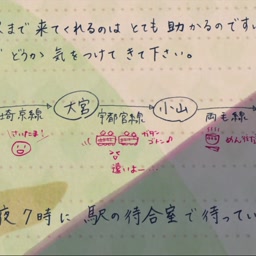 まで来てくれるのは とても 助かるのですが
どうか 気をつけて きて下さい。
大宮 小山
埼京線 宇都宮線 両毛線
さいたま!
ガタン
ゴトン♪
遠いよー…
夜7時に 駅の待合室で待ってい